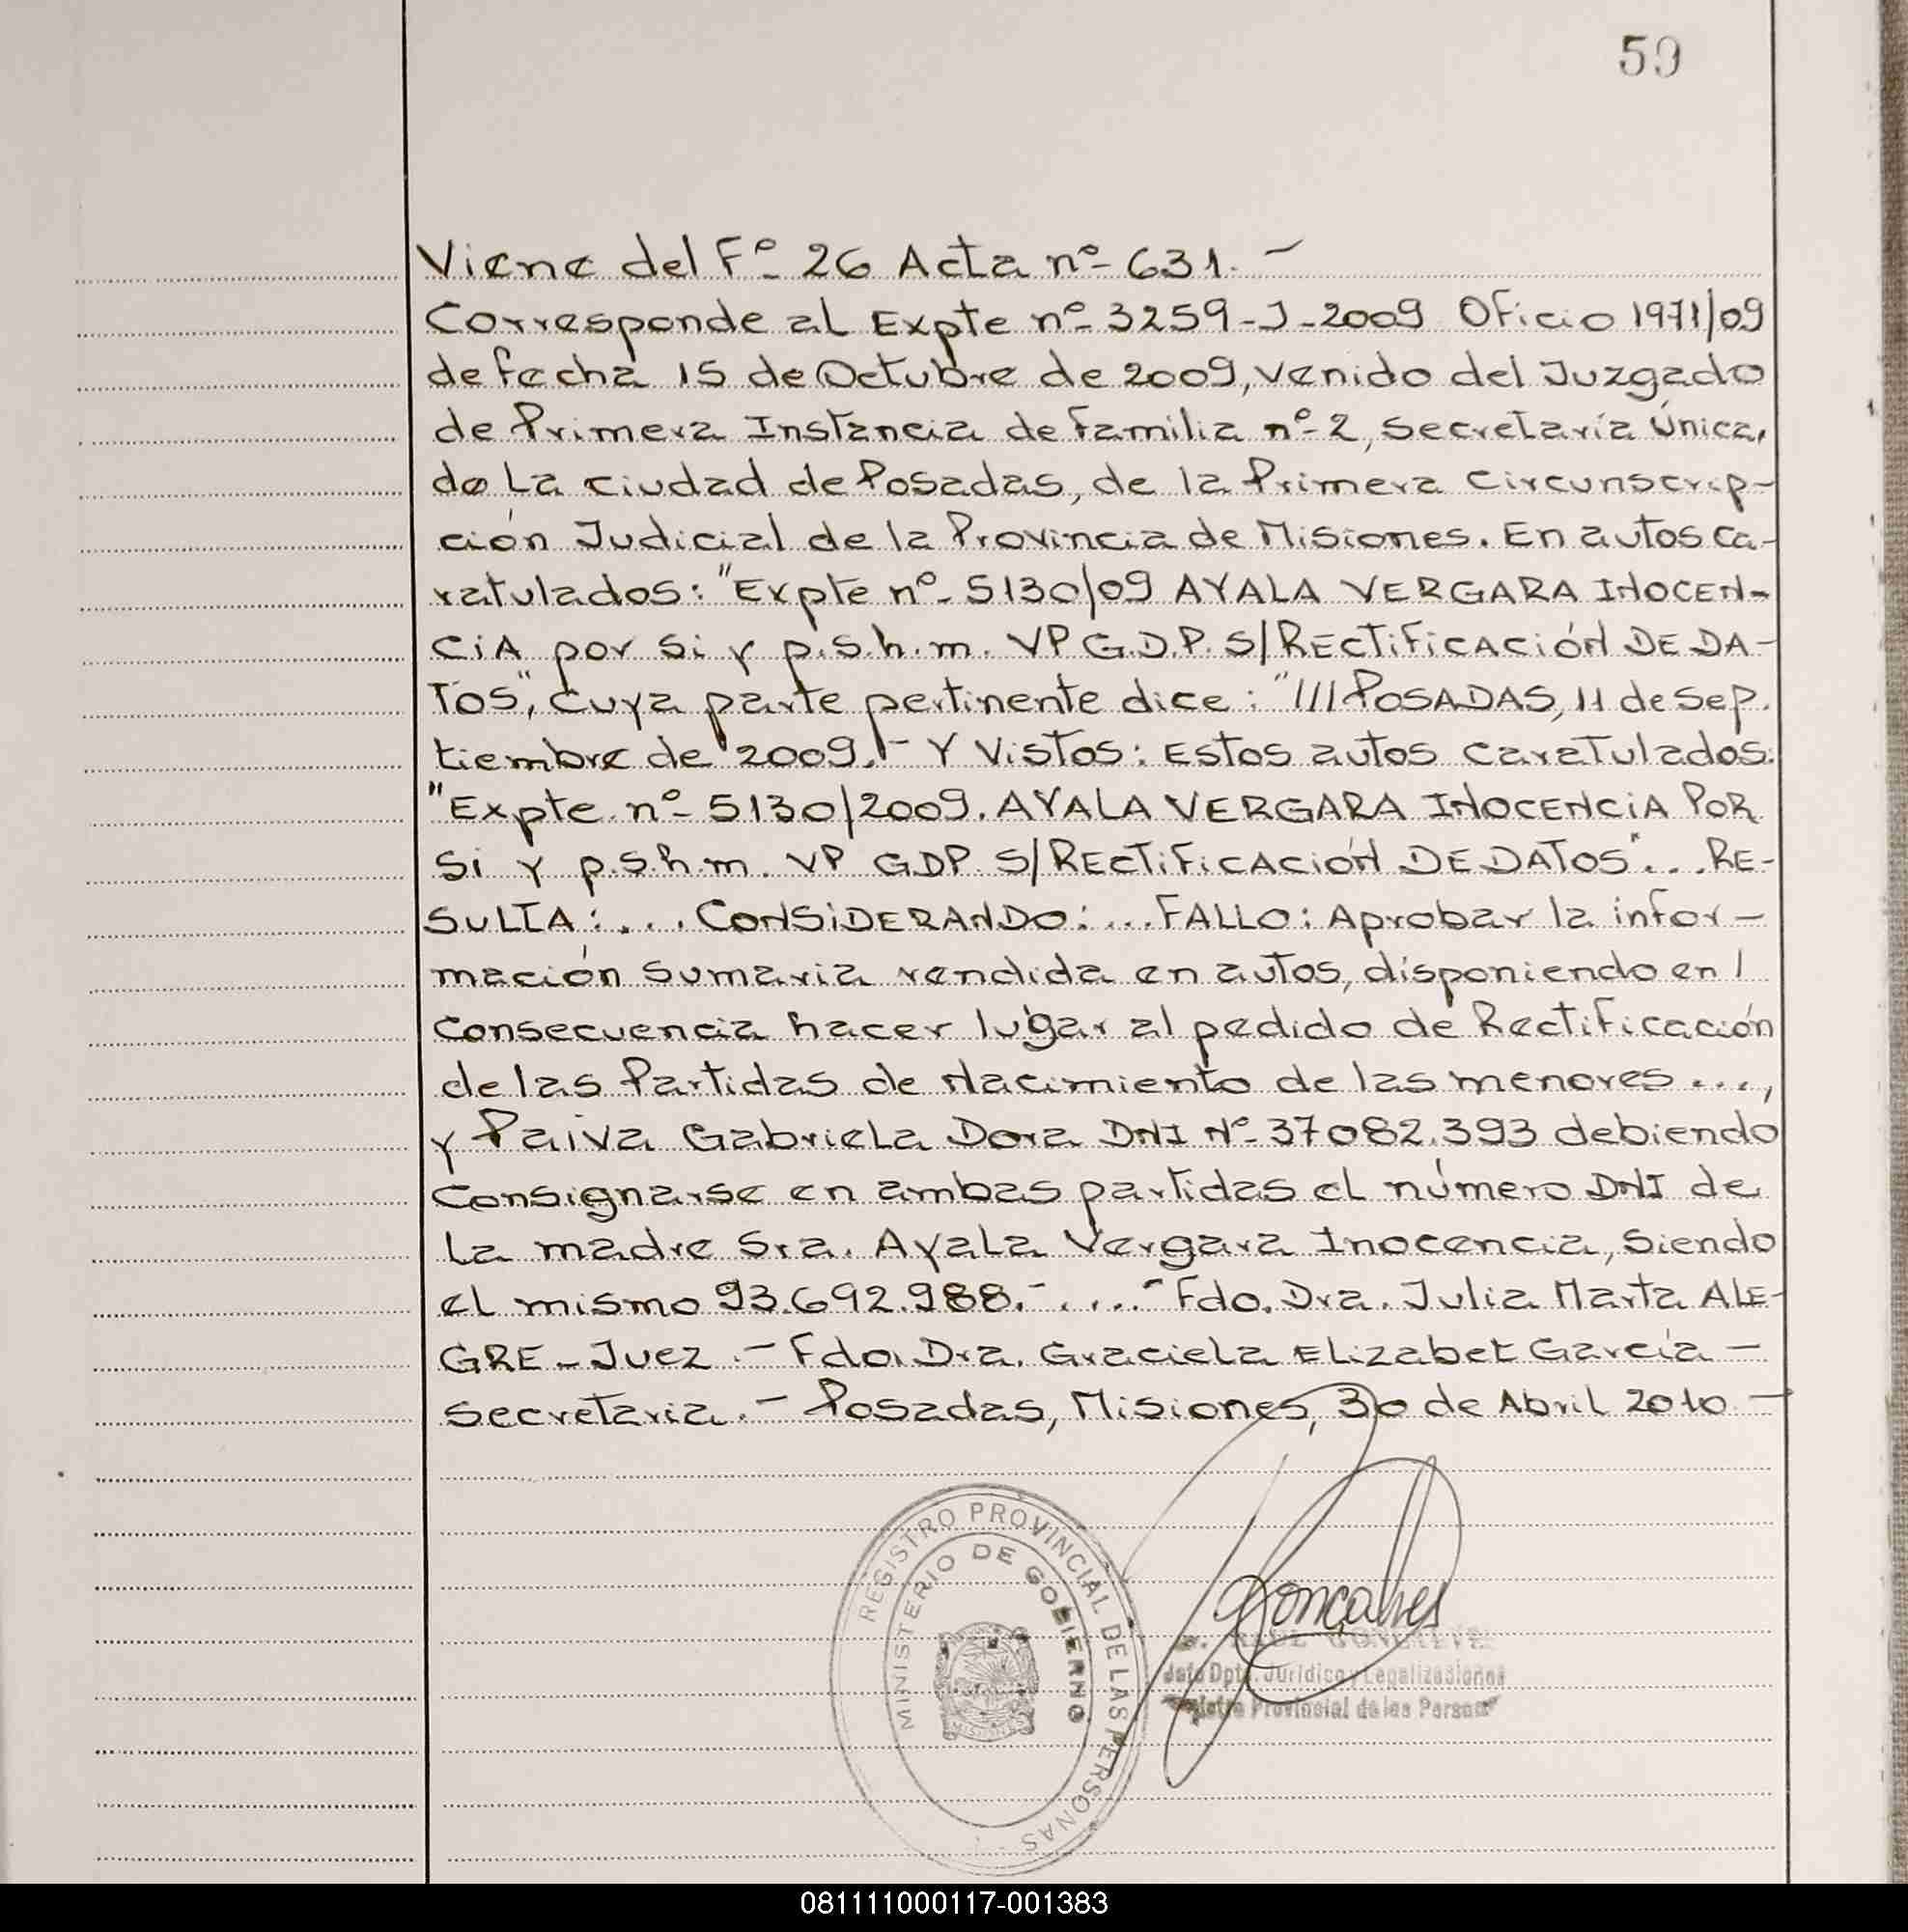 59
Viene del Fº 26 Acta nº 631.-
Corresponde al Expte nº 3259-J-2009 Oficio 1971/09
de fecha 15 de Octubre de 2009, venido del Juzgado
de Primera Instancia de Familia nº 2, Secretaría Única,
de La Ciudad de Posadas, de la Primera Circunscrip-
ción Judicial de la Provincia de Misiones. En autos ca-
ratulados: "Expte nº 5130/09 AYALA VERGARA INOCEN-
CIA por si y p.s.h.m. VP G.D.P. S/RECTIFICACIÓN DE DA-
TOS", cuya parte pertinente dice: "///POSADAS, 11 de Sep.
tiembre de 2009.- Y Vistos: Estos autos caratulados:
"Expte nº 5130/2009. AYALA VERGARA INOCENCIA POR
Si y p.s.h.m. VP GDP. S/RECTIFICACIÓN DE DATOS"... RE-
SULTA:... CONSIDERANDO:... FALLO: Aprobar la infor-
mación sumaria rendida en autos, disponiendo en /
consecuencia hacer lugar al pedido de Rectificación
de las Partidas de Nacimiento de las menores ...,
y Paiva Gabriela Dora DNI Nº 37082.393 debiendo
consignarse en ambas partidas el número DNI de
La madre Sra. Ayala Vergara Inocencia, siendo
el mismo 93.692.988.-....- Fdo. Dra. Julia Marta ALE-
GRE - Juez.- Fdo. Dra. Graciela Elizabet García -
Secretaria.- Posadas, Misiones, 30 de Abril 2010 -
REGISTRO PROVINCIAL DE LAS PERSONAS
MINISTERIO DE GOBIERNO
MISIONES
Gonçalves
Jefe Dpto. Jurídico y Legalizaciones
Registro Provincial de las Personas
081111000117-001383